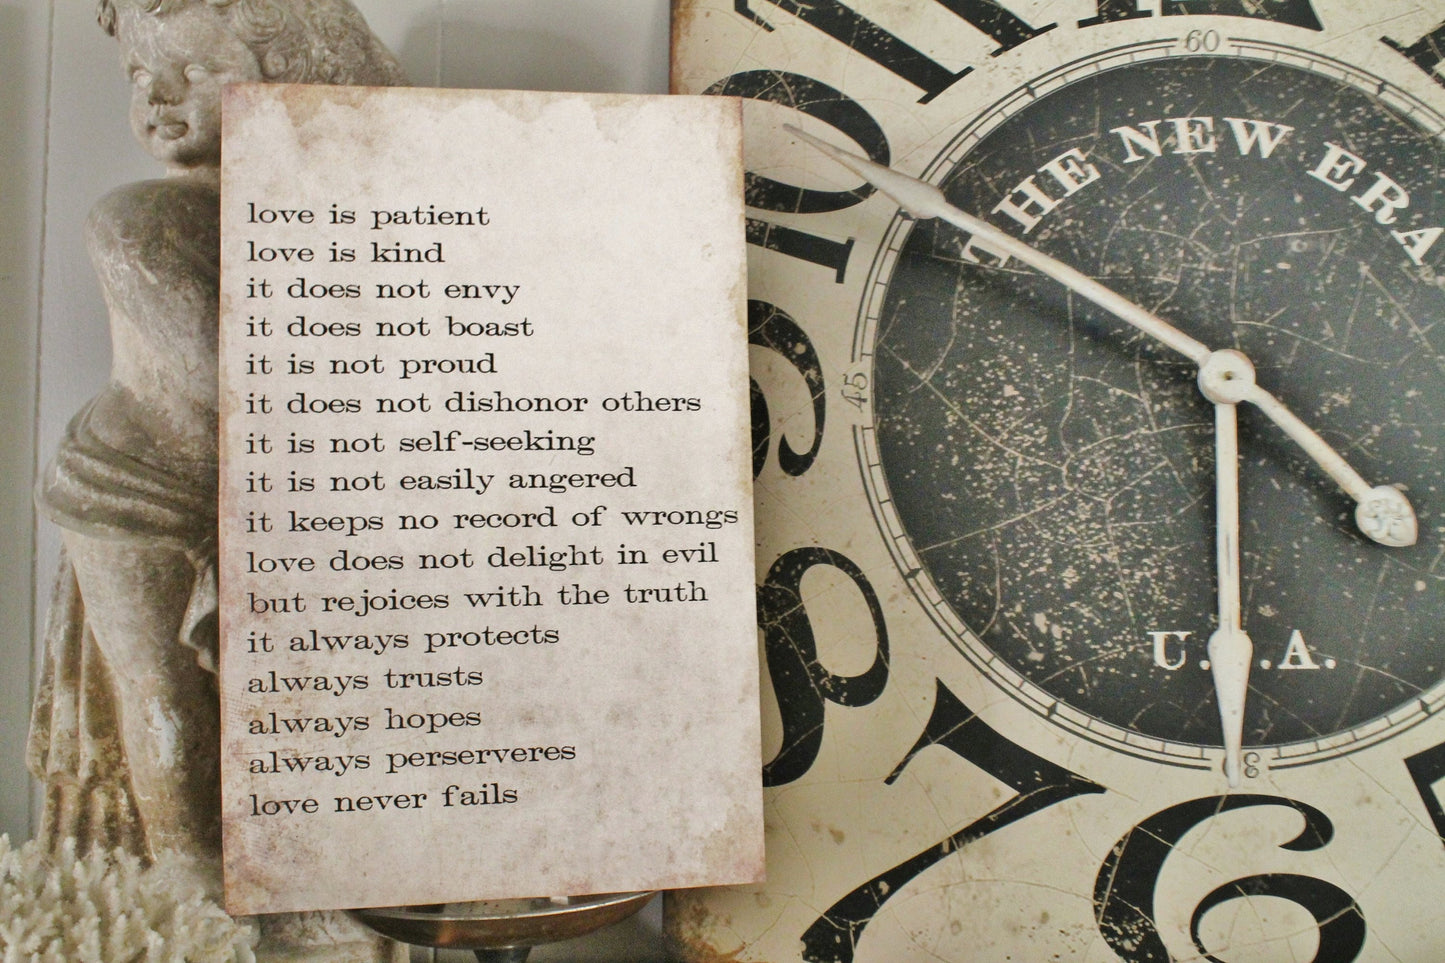 love is patient
love is kind
it does not envy
it does not boast
it is not proud
it does not dishonor others
it is not self-seeking
it is not easily angered
it keeps no record of wrongs
love does not delight in evil
but rejoices with the truth
it always protects
always trusts
always hopes
always perserveres
love never fails
60
THE NEW ERA
45
U.  .A.
10
9
8
7
6